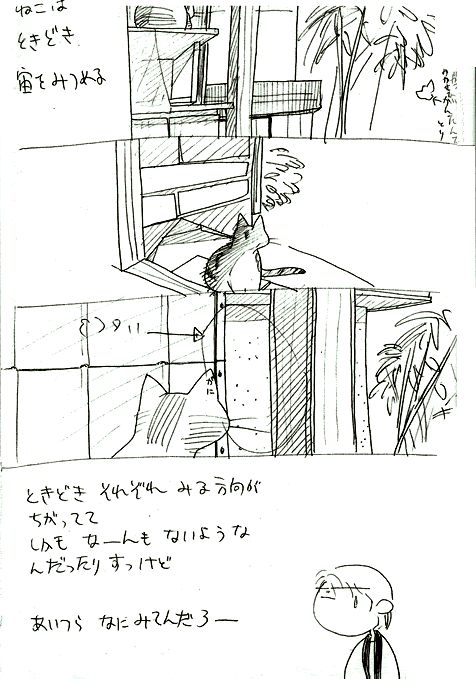 ねこは
ときどき
宙をみつめる
とり
ときどき それぞれ みる方向が
ちがってて
しかも なーんも ないような
んだったり すっけど
あいつら なにみてんだろー